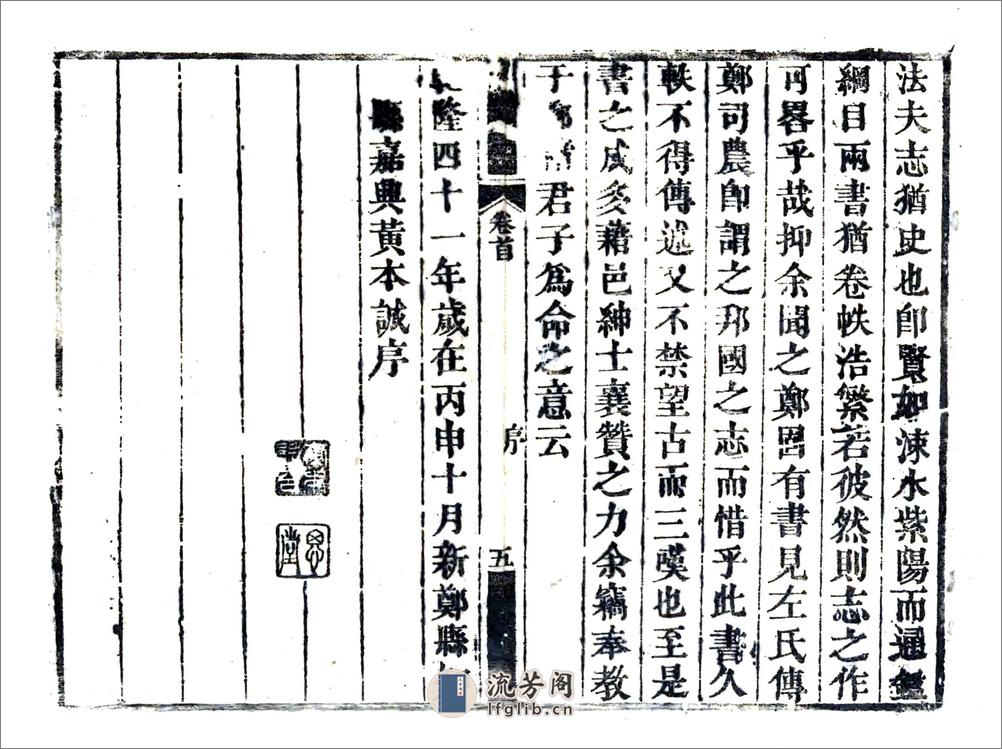 法夫志猶史也卽賢如涑水紫陽而通鑑
綱目兩書猶卷帙浩繁若彼然則志之作
可畧乎哉抑余聞之鄭固有書見左氏傳
鄭司農卽謂之邦國之志而惜乎此書久
軼不得傳述又不禁望古而三嘆也至是
書之成多藉邑紳士襄贊之力余竊奉教
于君子爲命之意云
卷首
序
五
隆四十一年歲在丙申十月新鄭縣知
縣嘉興黃本誠序
流芳阁
lfglib.cn